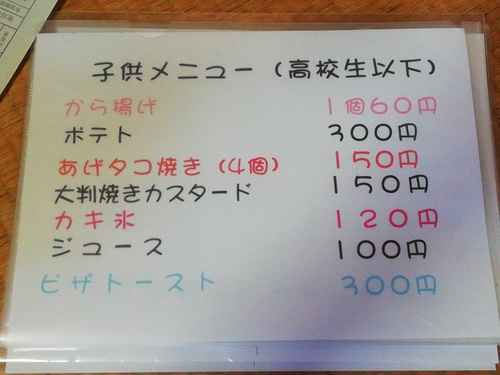 子供メニュー（高校生以下）
から揚げ １個６０円
ポテト ３００円
あげタコ焼き（４個） １５０円
大判焼きカスタード １５０円
カキ氷 １２０円
ジュース １００円
ピザトースト ３００円